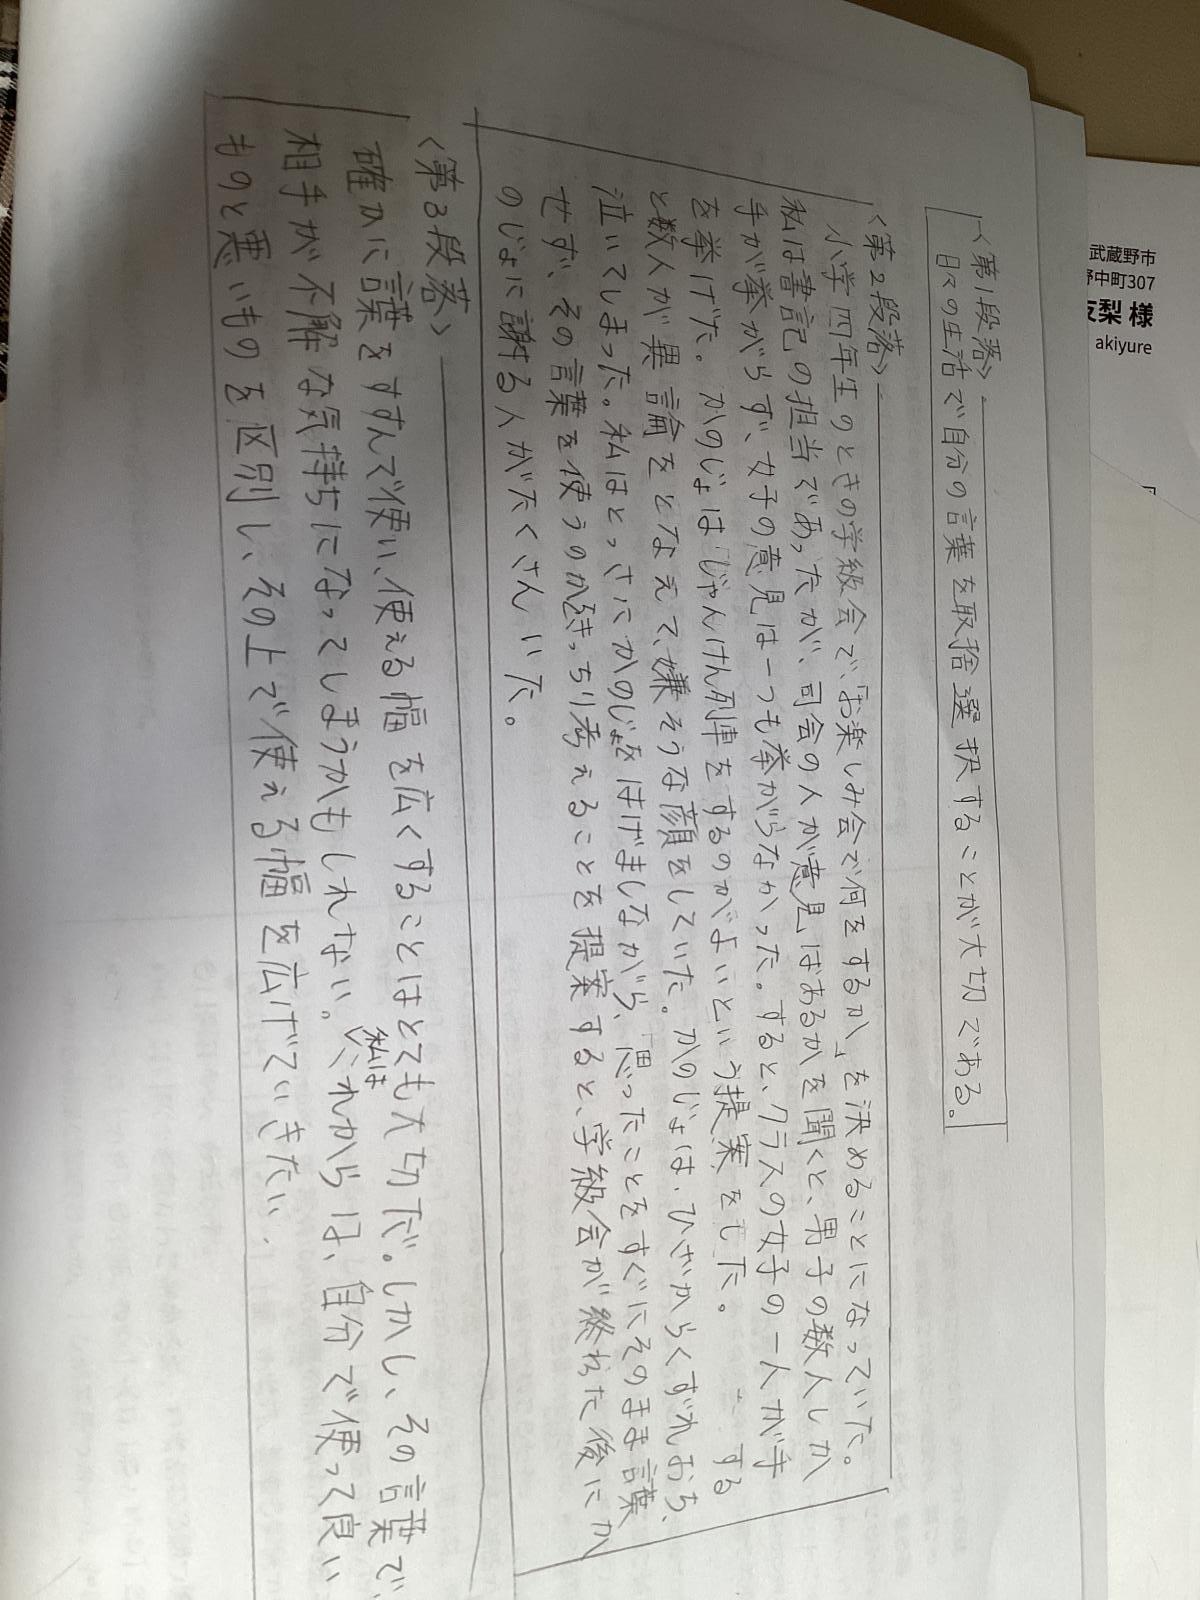 武蔵野市
野中町307
友梨 様
akiyure
<第1段落>
日々の生活で自分の言葉を取捨選択することが大切である。
<第2段落>
小学四年生のときの学級会で、「お楽しみ会で何をするか」を決めることになっていた。
私は書記の担当であったが、司会の人が意見はあるかを聞くと、男子の数人しか
手が挙がらず、女子の意見は一つも挙がらなかった。すると、クラスの女子の一人が手
を挙げた。かのじょはじゃんけん列車をするのがよいという提案をした。する
と数人が異論をとなえて、嫌そうな顔をしていた。かのじょは、ひざからくずれおち、
泣いてしまった。私はとっさにかのじょをはげましながら、「思ったことをすぐにそのまま言葉
せず、その言葉を使うのかきっちり考えることを提案すると、学級会が終わった後にか
のじょに謝る人がたくさんいた。
<第3段落>
確かに言葉をすすんで使い、使える幅を広くすることはとても大切だ。しかし、その言葉で、
相手が不解な気持ちになってしまうかもしれない。私はこれからは、自分で使って良い
ものと悪いものを区別し、その上で使える幅を広げていきたい.